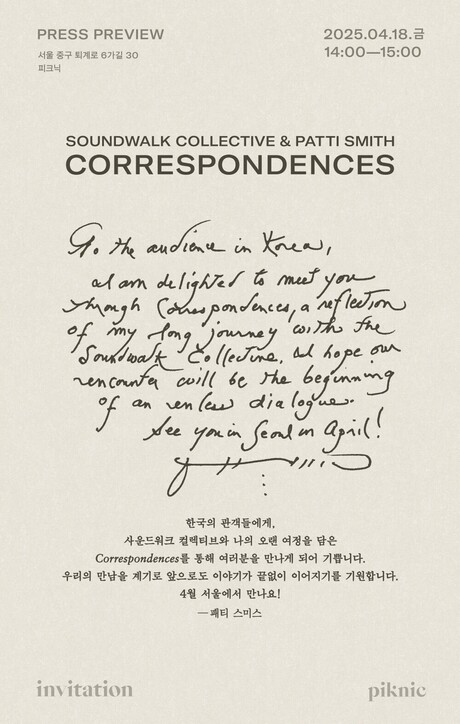 PRESS PREVIEW
서울 중구 퇴계로 6가길 30
피크닉
2025.04.18.금
14:00—15:00
SOUNDWALK COLLECTIVE & PATTI SMITH
CORRESPONDENCES
To the audience in Korea,
I am delighted to meet you
through Correspondences, a reflection
of my long journey with the
Soundwalk Collective. I hope our
rencounter will be the beginning
of an endless dialogue.
See you in Seoul in April!
한국의 관객들에게,
사운드워크 컬렉티브와 나의 오랜 여정을 담은
Correspondences를 통해 여러분을 만나게 되어 기쁩니다.
우리의 만남을 계기로 앞으로도 이야기가 끝없이 이어지기를 기원합니다.
4월 서울에서 만나요!
— 패티 스미스
invitation
piknic